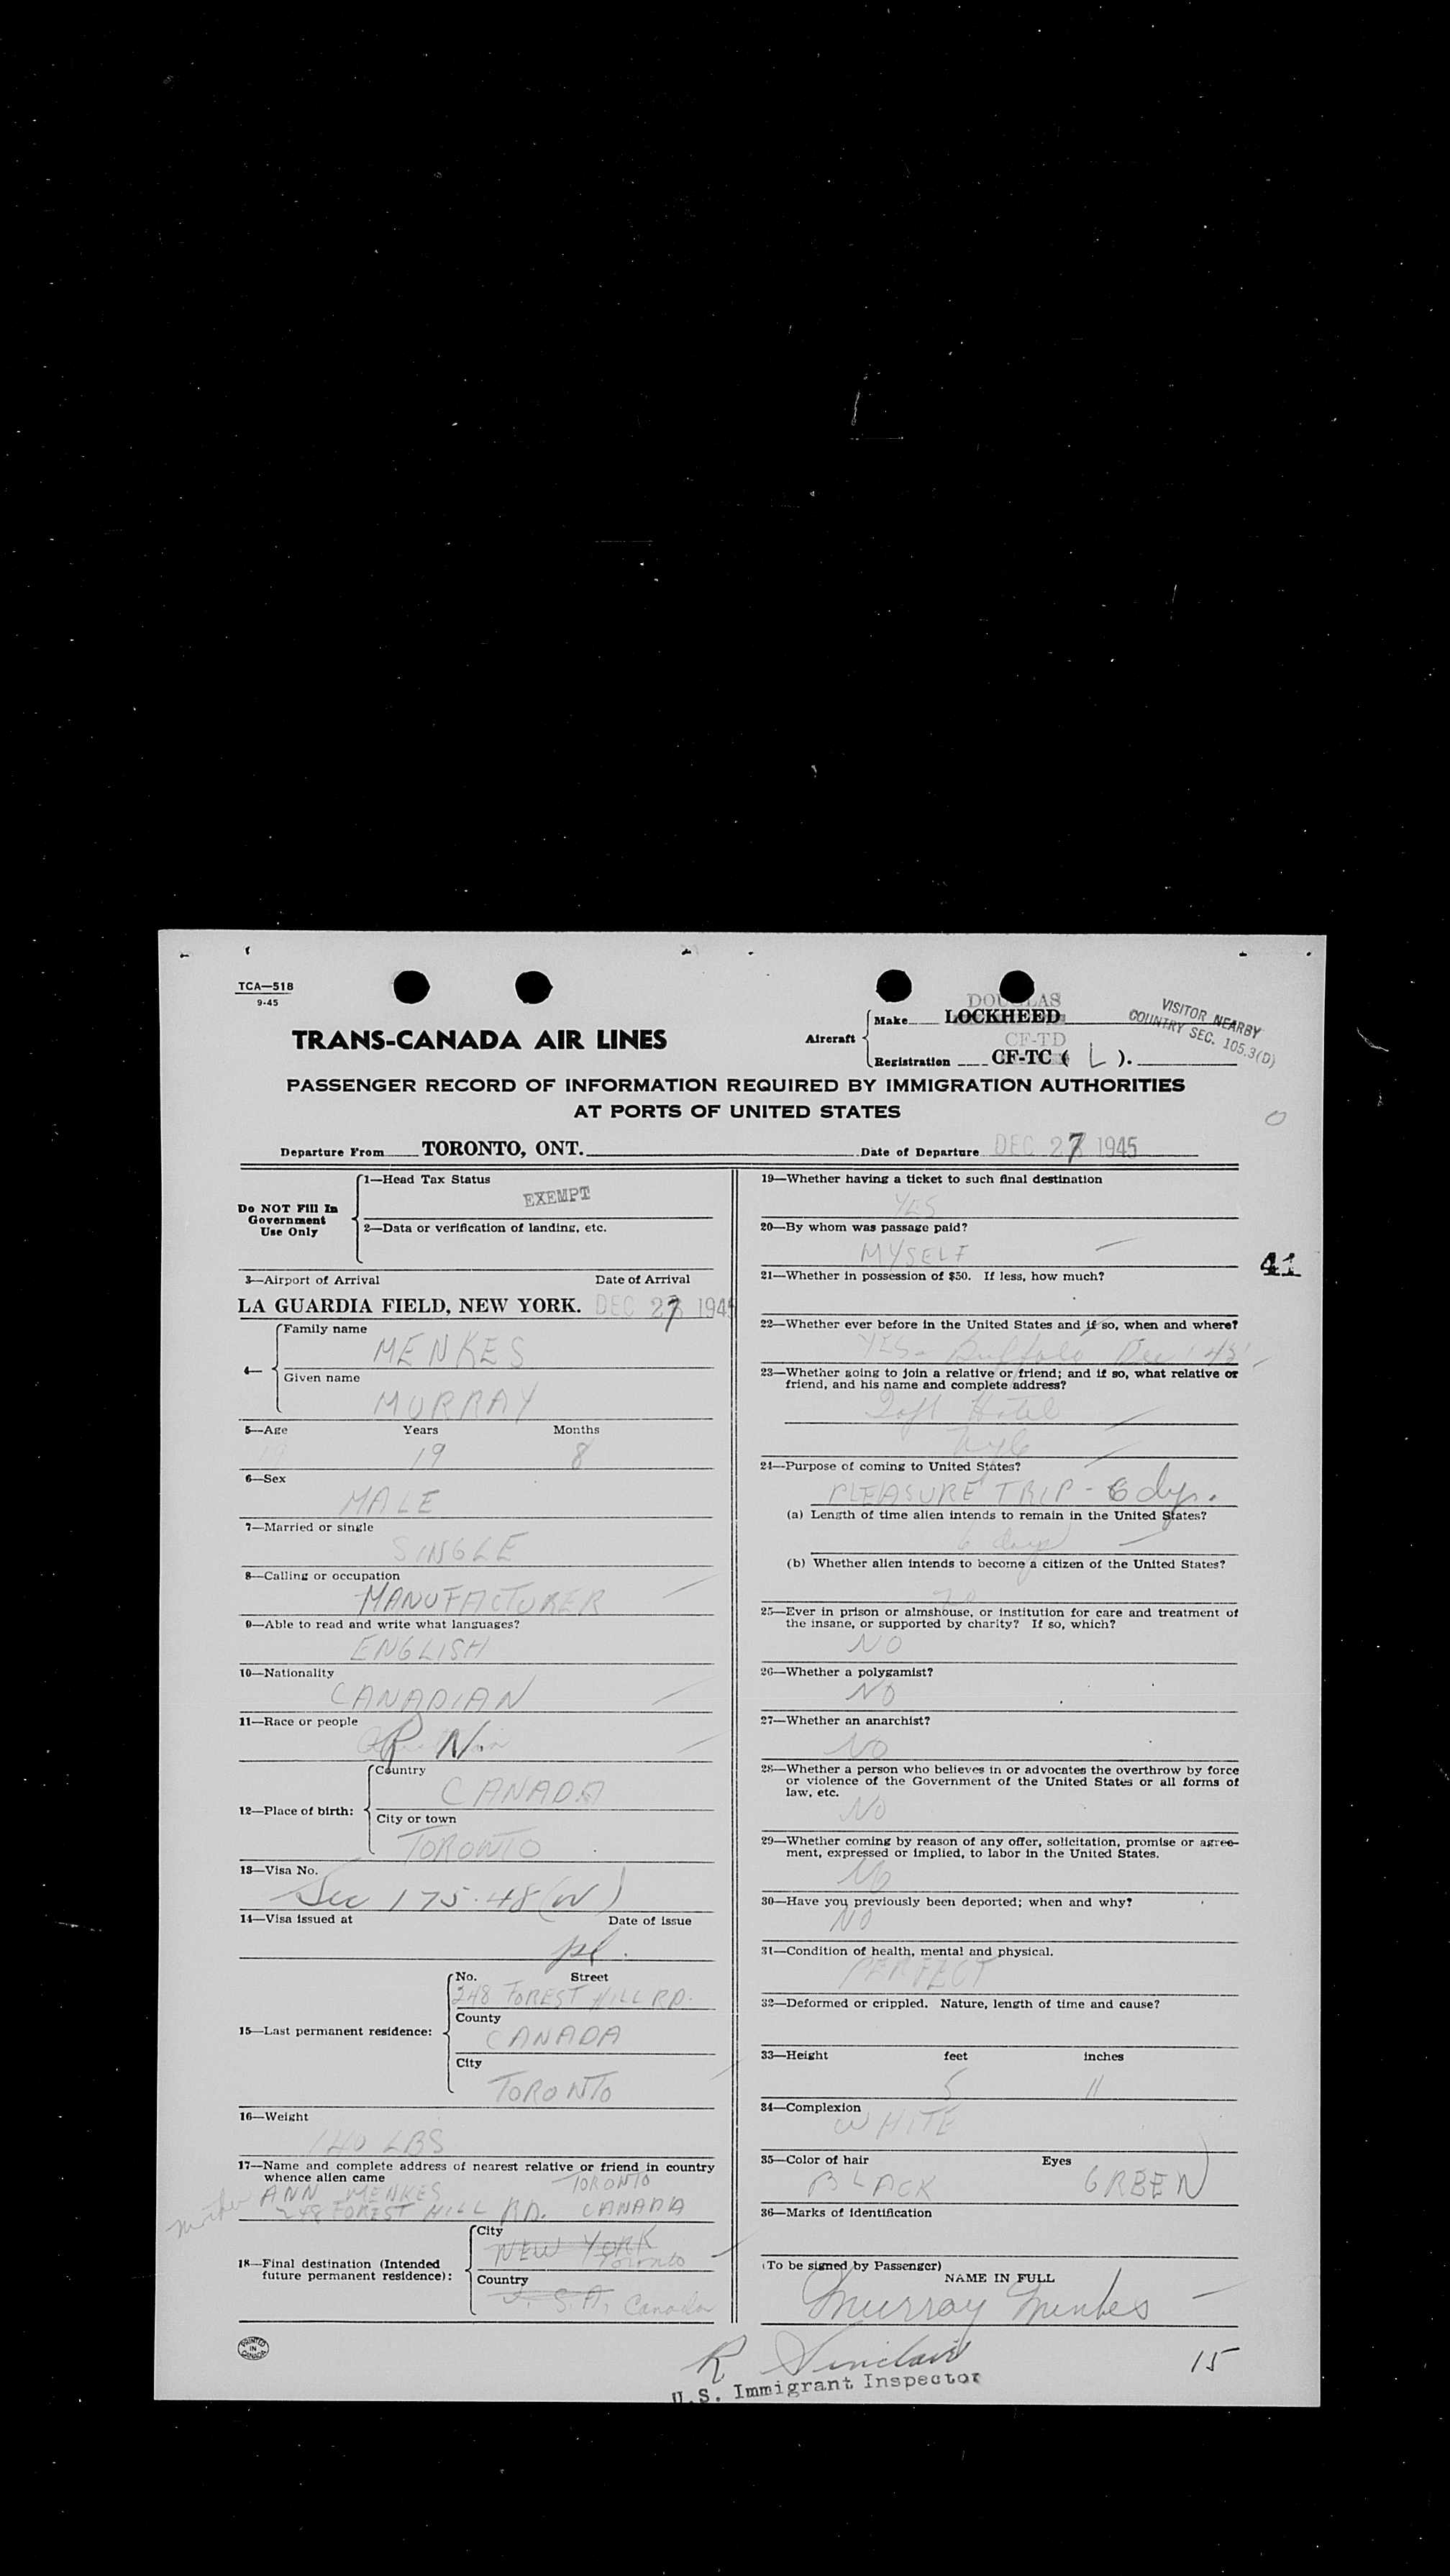 TCA—518
9-45
DOUGLAS
TRANS-CANADA AIR LINES
Aircraft
Make LOCKHEED
CF-TD
Registration CF-TC ( L ).
VISITOR NEARBY
COUNTRY SEC. 105.3(D)
PASSENGER RECORD OF INFORMATION REQUIRED BY IMMIGRATION AUTHORITIES
AT PORTS OF UNITED STATES
Departure From TORONTO, ONT. Date of Departure DEC 27 1945
Do NOT Fill In
Government
Use Only
1—Head Tax Status
EXEMPT
2—Data or verification of landing, etc.
3—Airport of Arrival Date of Arrival
LA GUARDIA FIELD, NEW YORK. DEC 27 1945
4—
Family name
MENKES
Given name
MURRAY
5—Age Years Months
19 8
6—Sex
MALE
7—Married or single
SINGLE
8—Calling or occupation
MANUFACTURER
9—Able to read and write what languages?
ENGLISH
10—Nationality
CANADIAN
11—Race or people
12—Place of birth:
Country
CANADA
City or town
TORONTO
13—Visa No.
Sec 175.48 (W)
14—Visa issued at Date of issue
15—Last permanent residence:
No. Street
248 FOREST HILL RD.
County
CANADA
City
TORONTO
16—Weight
140 LBS
17—Name and complete address of nearest relative or friend in country
whence alien came
TORONTO
mother ANN MENKES
248 FOREST HILL RD. CANADA
18—Final destination (Intended
future permanent residence):
City
NEW YORK
Toronto
Country
U. S. A. Canada
PRINTED
IN
CANADA
19—Whether having a ticket to such final destination
YES
20—By whom was passage paid?
MYSELF
41
21—Whether in possession of $50. If less, how much?
22—Whether ever before in the United States and if so, when and where?
YES - Buffalo Dec
23—Whether going to join a relative or friend; and if so, what relative or
friend, and his name and complete address?
Taft Hotel
NYC
24—Purpose of coming to United States?
PLEASURE TRIP - 6 dys.
(a) Length of time alien intends to remain in the United States?
6 days
(b) Whether alien intends to become a citizen of the United States?
no
25—Ever in prison or almshouse, or institution for care and treatment of
the insane, or supported by charity? If so, which?
NO
26—Whether a polygamist?
NO
27—Whether an anarchist?
NO
28—Whether a person who believes in or advocates the overthrow by force
or violence of the Government of the United States or all forms of
law, etc.
NO
29—Whether coming by reason of any offer, solicitation, promise or agree-
ment, expressed or implied, to labor in the United States.
NO
30—Have you previously been deported; when and why?
NO
31—Condition of health, mental and physical.
PERFECT
32—Deformed or crippled. Nature, length of time and cause?
33—Height feet inches
5 11
34—Complexion
WHITE
35—Color of hair Eyes
BLACK GREEN
36—Marks of identification
(To be signed by Passenger)
NAME IN FULL
Murray Menkes
R Sinclair
U.S. Immigrant Inspector
15